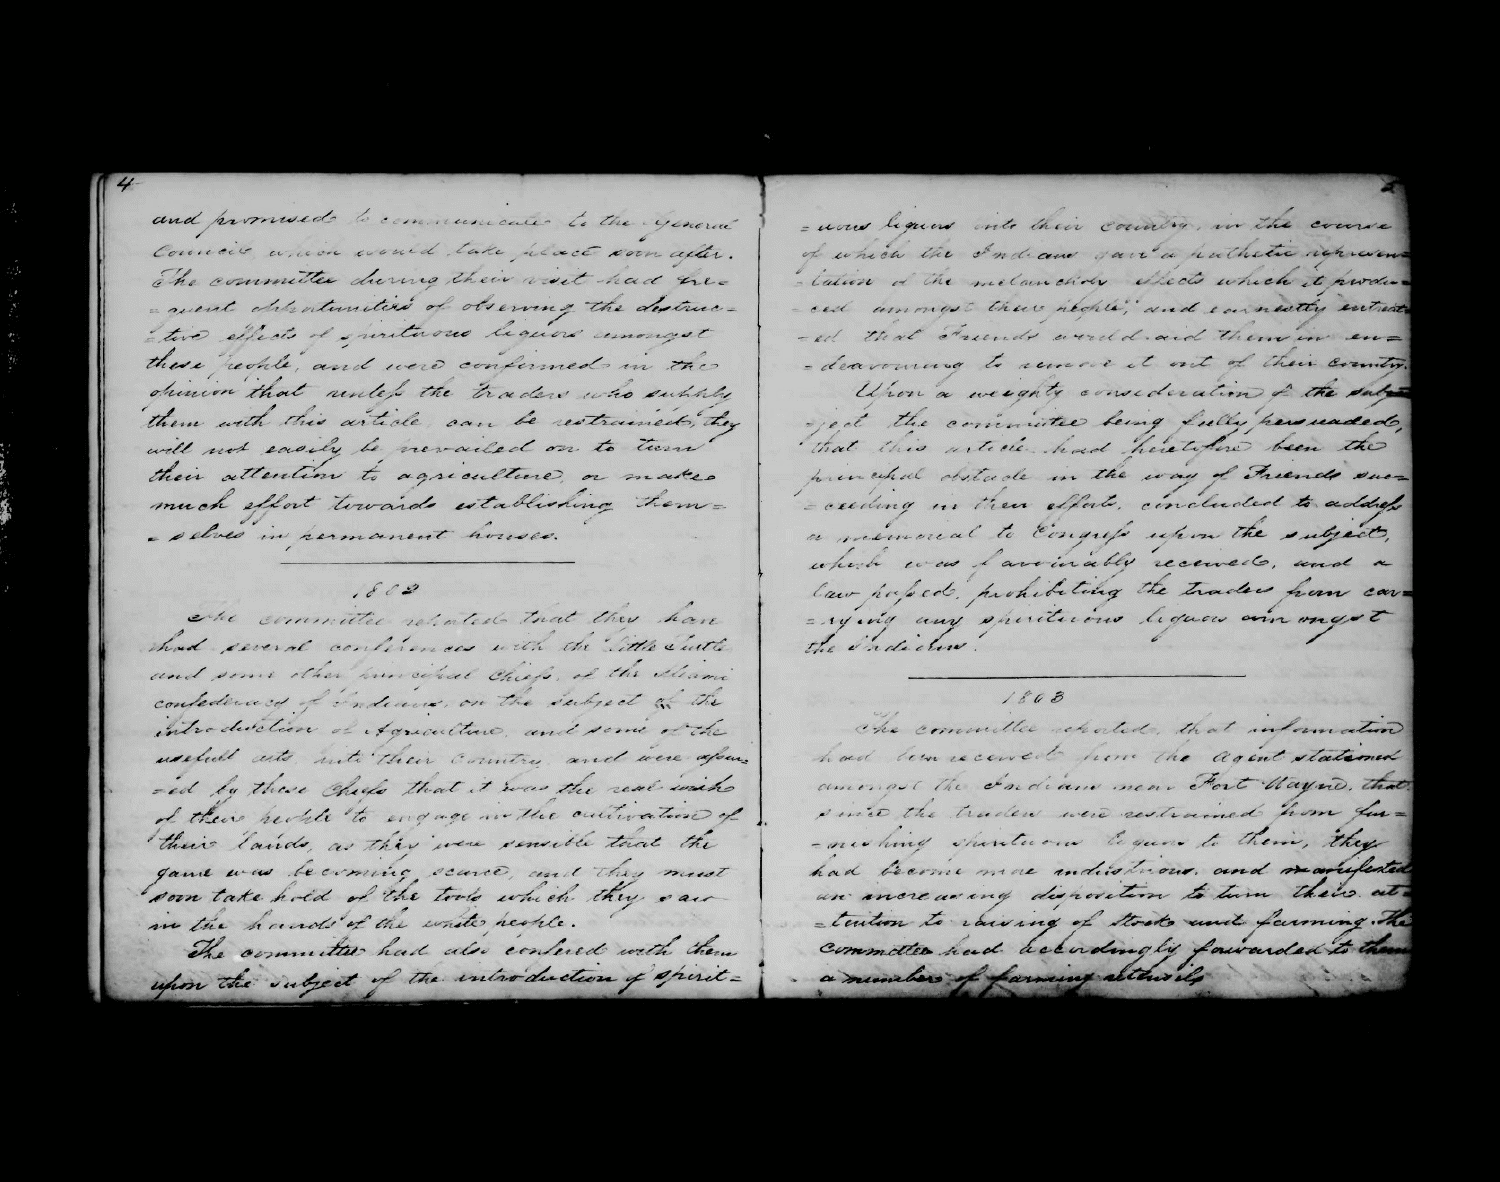 4
and promised to communicate to the General
Council which would take place soon after.
The committee during their visit had fre=
=quent oppertunities of observing the destruc=
=tive effects of spirituous liquors amongst
these people, and were confirmed in the
opinion that unless the traders who supply
them with this article, can be restrained, they
will not easily be prevailed on to turn
their attention to agriculture, or make
much effort towards establishing them=
=selves in permanent houses.
1802
The committee reported that they have
had several conferences with the Little Turtle
and some other principal Chiefs, of the Miami
confederacy of Indians, on the subject of the
introduction of Agriculture, and some of the
usefull arts, into their Country, and were assur=
=ed by these Chiefs that it was the real wish
of their people to engage in the cultivation of
their lands, as they were sensible that the
game was becoming scarce, and they must
soon take hold of the tools which they saw
in the hands of the white people.
The committee had also confered with them
upon the subject of the introduction of spirit=
5
=uous liquors into their country, in the course
of which the Indians gave a pathetic represen=
=tation of the melancholy effects which it produ=
=ced amongst their people, and earnestly entreat=
=ed that Friends would aid them in en=
=deavouring to remove it out of their country.
Upon a weighty consideration of the sub=
=ject the committee being fully persuaded,
that this article had heretofore been the
principal obstacle in the way of Friends suc=
=ceeding in their efforts, concluded to address
a memorial to Congress upon the subject,
which was favourably received, and a
law passed, prohibiting the traders from car=
=rying any spirituous liquors amongst
the Indians.
1803
The committee reported, that information
had been received from the Agent stationed
amongst the Indians near Fort Wayne, that
since the traders were restrained from fur=
=nishing spirituous liquors to them, they
had become more industrious, and manifested
an increasing disposition to turn their at=
=tention to raising of Stock and farming. The
committee had accordingly forwarded to them
a number of farming utensils